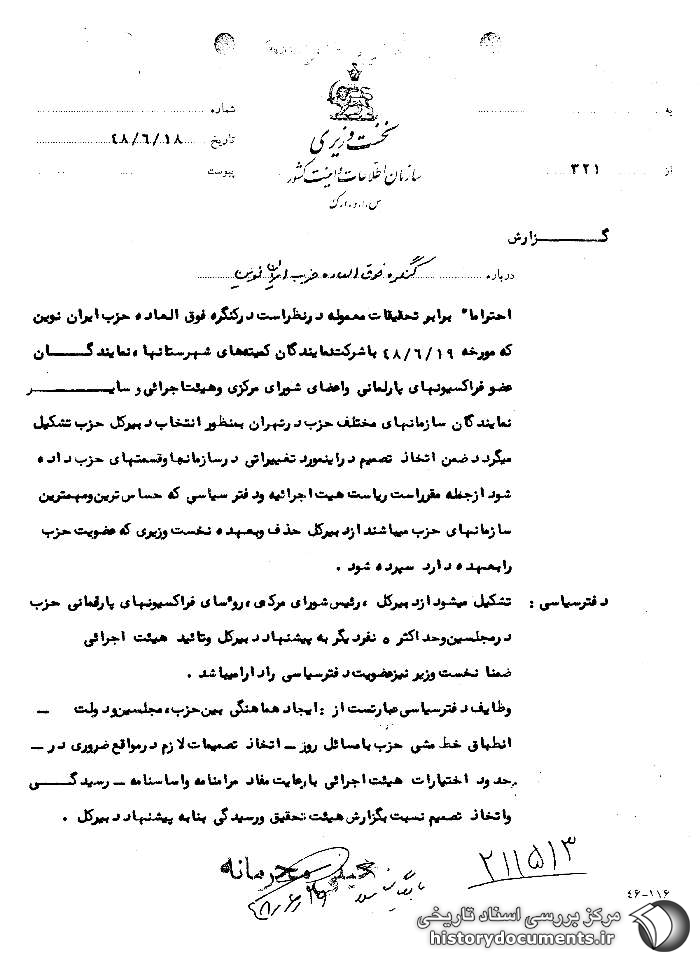 به
شماره
نخست وزیری
تاریخ ۴۸/۶/۱۸
سازمان اطلاعات و امنیت کشور
از ۳۲۱
پیوست
س.ا.و.ا.ک
گـــزارش
درباره کنگره فوق العاده حزب ایران نوین
احتراما" برابر تحقیقات معموله در نظر است در کنگره فوق العاده حزب ایران نوین
که مورخه ۴۸/۶/۱۹ با شرکت نمایندگان کمیته‌های شهرستانها، نمایندگـــان
عضو فراکسیونهای پارلمانی واعضای شورای مرکزی وهیئت اجرائی و سایـــر
نمایندگان سازمانهای مختلف حزب در تهران بمنظور انتخاب دبیرکل حزب تشکیل
میگردد ضمن اتخاذ تصمیم در اینمورد تغییراتی در سازمانها وقسمتهای حزب داده
شود ازجمله مقرراست ریاست هیت اجرائیه ودفتر سیاسی که حساس ترین ومهمترین
سازمانهای حزب میباشند از دبیرکل حذف وبعهده نخست وزیری که عضویت حزب
را بعهده دارد سپرده شود .
دفترسیاسی : تشکیل میشود از دبیرکل ، رئیس شورای مرکزی، روسای فراکسیونهای پارلمانی حزب
در مجلسین وحداکثر ۵ نفر دیگر به پیشنهاد دبیرکل وتائید هیئت اجرائی
ضمنا نخست وزیر نیز عضویت دفتر سیاسی را دارا میباشد .
وظایف دفترسیاسی عبارتست از : ایجاد هماهنگی بین حزب، مجلسین و دولت –
انطباق خط مشی حزب با مسائل روز – اتخاذ تصمیمات لازم در مواقع ضروری در –
حدود اختیارات هیئت اجرائی با رعایت مفاد مرامنامه واساسنامه – رسیدگـــی
واتخاذ تصمیم نسبت بگزارش هیئت تحقیق ورسیدگی بنا به پیشنهاد دبیرکل .
۲۱۱۵۱۳
محرمانه
بایگانی شود
۴۶-۱۱۶
مرکز بررسی اسناد تاریخی
historydocuments.ir